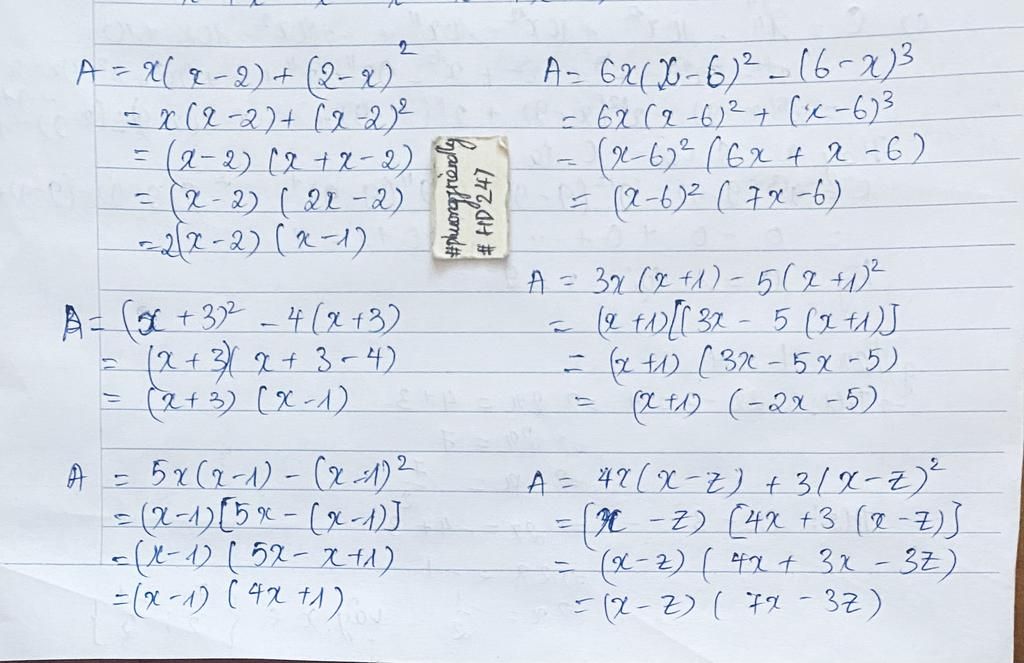 A = x(x-2) + (2-x)²
= x(x-2) + (x-2)²
= (x-2) (x + x - 2)
= (x-2) (2x - 2)
= 2(x-2) (x-1)
A = 6x(x-6)² - (6-x)³
= 6x(x-6)² + (x-6)³
= (x-6)² (6x + x - 6)
= (x-6)² (7x-6)
# HD247
A = (x+3)² - 4(x+3)
= (x+3)(x + 3 - 4)
= (x+3) (x-1)
A = 3x(x+1) - 5(x+1)²
= (x+1)[(3x - 5(x+1)]
= (x+1) (3x - 5x - 5)
= (x+1) (-2x - 5)
A = 5x(x-1) - (x-1)²
= (x-1)[5x - (x-1)]
= (x-1) (5x - x + 1)
= (x-1) (4x+1)
A = 4x(x-z) + 3(x-z)²
= (x - z) [4x + 3(x-z)]
= (x-z) (4x + 3x - 3z)
= (x-z) (7x - 3z)